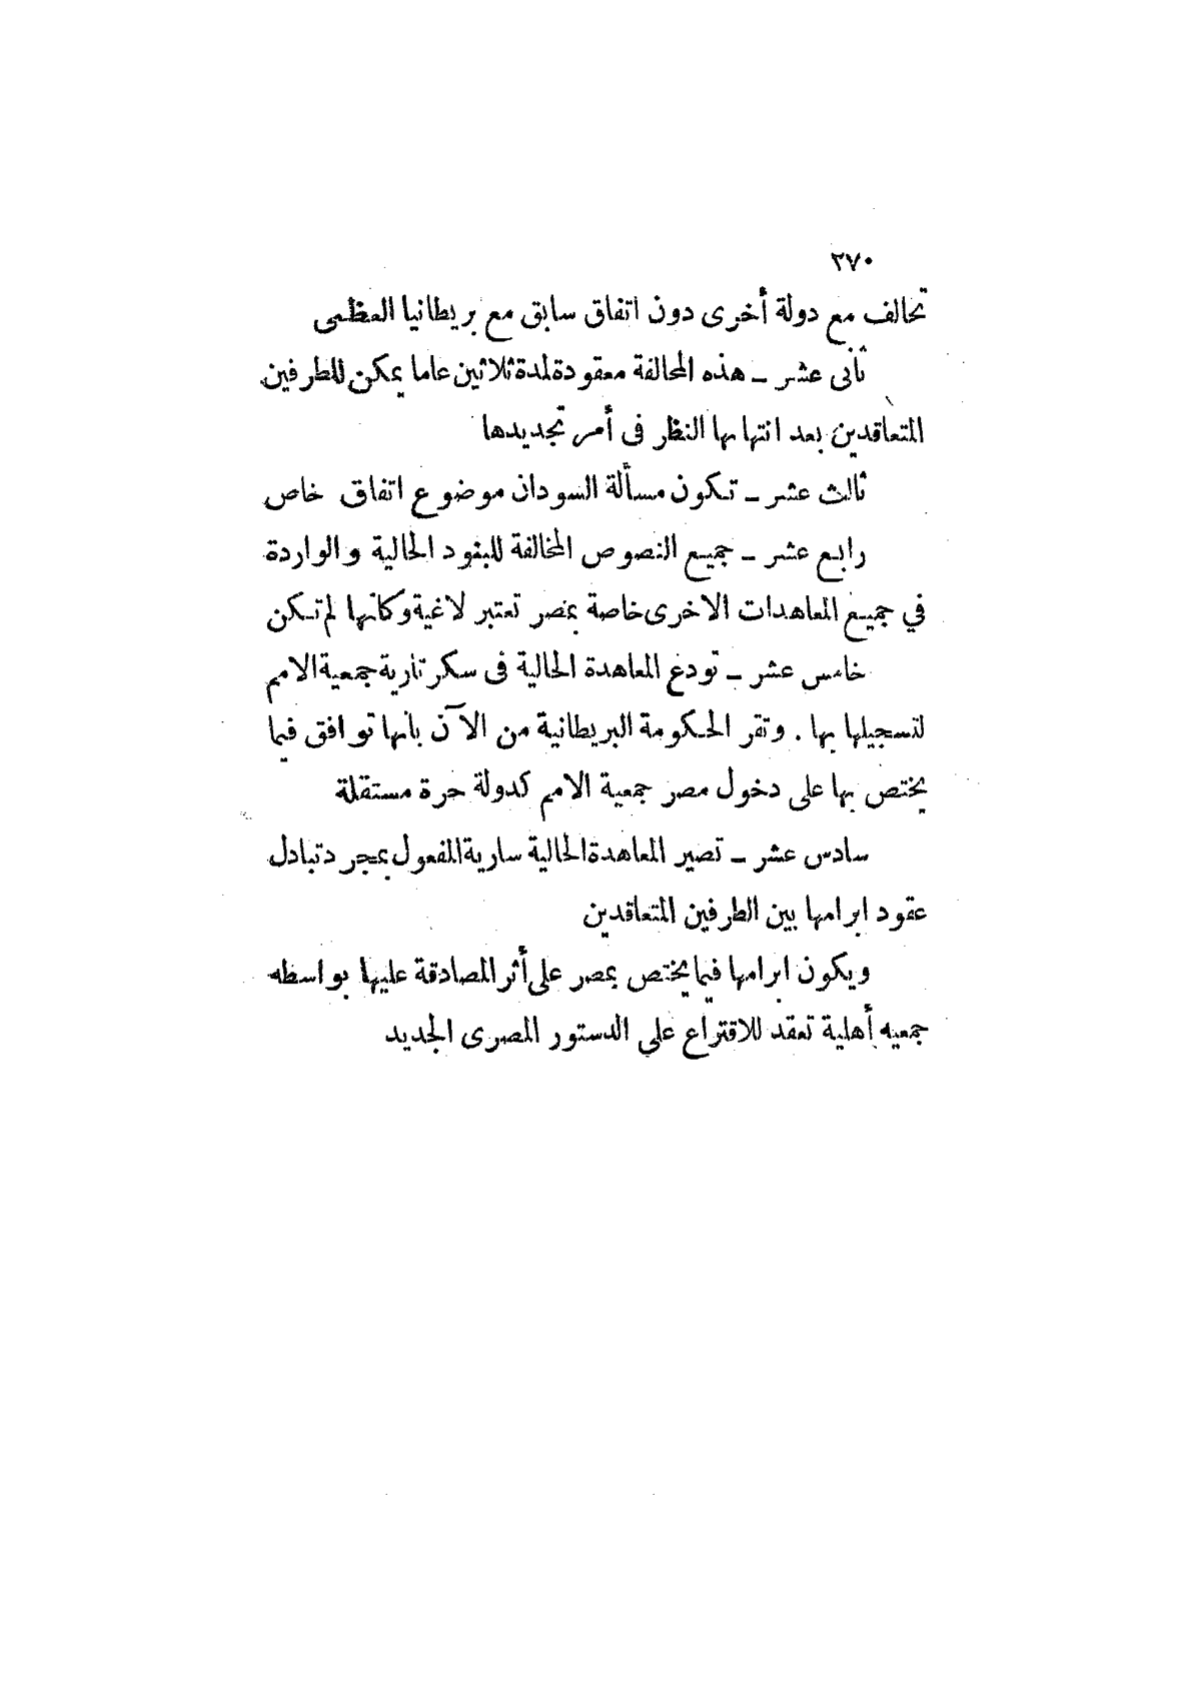 ٢٧٠
تحالف مع دولة أخرى دون اتفاق سابق مع بريطانيا العظمى
ثانى عشر ــ هذه المحالفة معقودة لمدة ثلاثين عاما يمكن للطرفين
المتعاقدين بعد انتهائها النظر فى أمر تجديدها
ثالث عشر ــ تكون مسألة السودان موضوع اتفاق خاص
رابع عشر ــ جميع النصوص المخالفة للبنود الحالية والواردة
في جميع المعاهدات الاخرى خاصة بمصر تعتبر لاغية وكأنها لم تكن
خامس عشر ــ تودع المعاهدة الحالية فى سكرتارية جمعية الامم
لتسجيلها بها . وتقر الحكومة البريطانية من الآن بانها توافق فيما
يختص بها على دخول مصر جمعية الامم كدولة حرة مستقلة
سادس عشر ــ تصير المعاهدة الحالية سارية المفعول بمجرد تبادل
عقود ابرامها بين الطرفين المتعاقدين
ويكون ابرامها فيما يختص بمصر على أثر المصادقة عليها بواسطه
جمعيه أهلية تعقد للاقتراع على الدستور المصرى الجديد